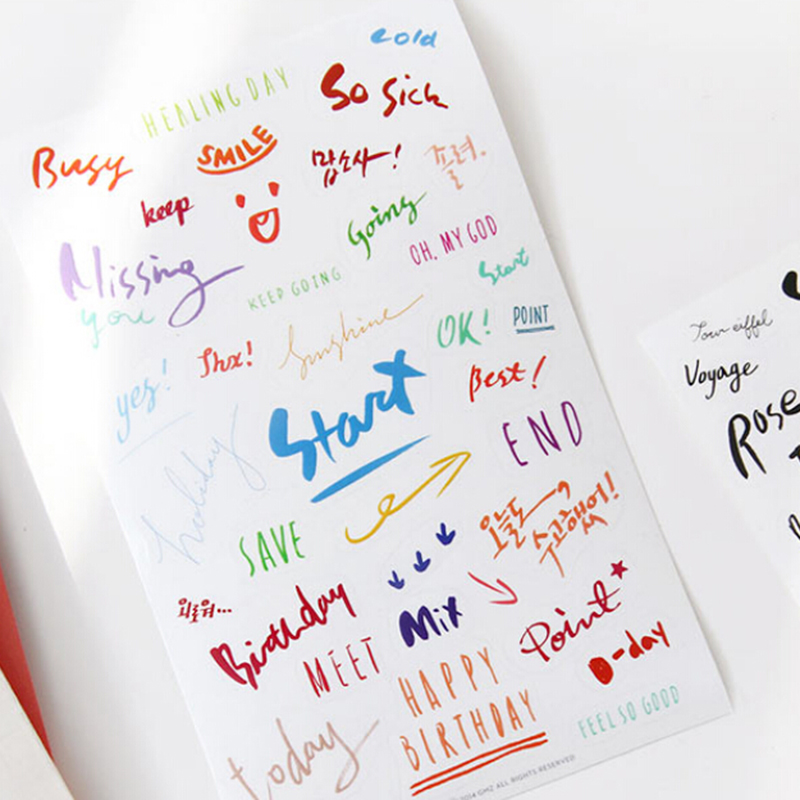 Cold
HEALING DAY
So Sick
Busy
SMILE
맙소사~!
졸려.
keep
Going
OH, MY GOD
Missing
you
KEEP GOING
Start
yes!
Thx!
Sunshine
OK!
POINT
Start
Best!
holiday
END
SAVE
오늘도
수고했어!
외로워...
Birthday
Mix
Point
MEET
D-day
HAPPY
BIRTHDAY
FEEL SO GOOD
today
2014 GMZ ALL RIGHTS RESERVED
Tour eiffel
Voyage
Rose